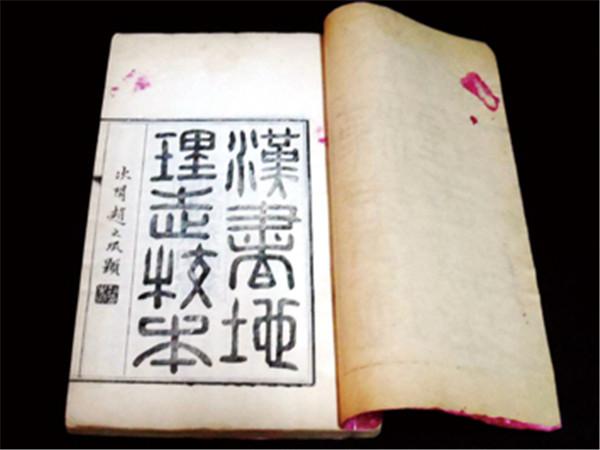 漢書地
理志校本
次閑趙之琛題